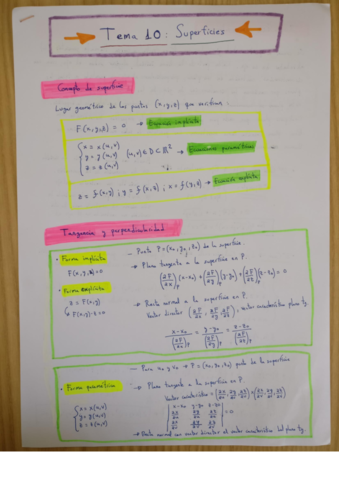 Tema 10: Superficies
Concepto de superficie
Lugar geométrico de los puntos (x,y,z) que verifican:
F(x,y,z) = 0 → Ecuación implícita
{ x = x(u,v)
y = y(u,v) (u,v) ∈ D ⊂ ℝ² → Ecuaciones paramétricas
z = z(u,v)
z = f(x,y) ; y = f(x,z) ; x = f(y,z) → Ecuación explícita
Tangencia y perpendicularidad
• Forma implícita
F(x,y,z)=0
• Forma explícita
z = F(x,y)
F(x,y)-z=0
- Punto P=(x₀,y₀,z₀) de la superficie.
→ Plano tangente a la superficie en P.
(∂F/∂x)ₚ(x-x₀)+(∂F/∂y)ₚ(y-y₀)+(∂F/∂z)ₚ(z-z₀)=0
→ Recta normal a la superficie en P.
Vector director (∂F/∂x, ∂F/∂y, ∂F/∂z), vector característico plano tg.
(x-x₀)/(∂F/∂x)ₚ = (y-y₀)/(∂F/∂y)ₚ = (z-z₀)/(∂F/∂z)ₚ
• Forma paramétrica
{ x = x(u,v)
y = y(u,v)
z = z(u,v)
- Para u₀ y v₀ → P=(x₀,y₀,z₀) punto de la superficie
→ Plano tangente a la superficie en P.
Vector característico = (∂x/∂u, ∂y/∂u, ∂z/∂u) × (∂x/∂v, ∂y/∂v, ∂z/∂v)
| x-x₀ y-y₀ z-z₀ |
| ∂x/∂u ∂y/∂u ∂z/∂u | = 0
| ∂x/∂v ∂y/∂v ∂z/∂v |
→ Recta normal con vector director el vector característico del plano tg.